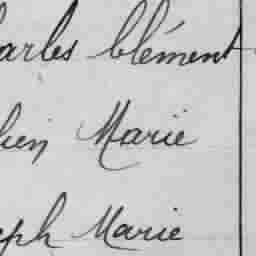 arles Clément
lien Marie
eph Marie